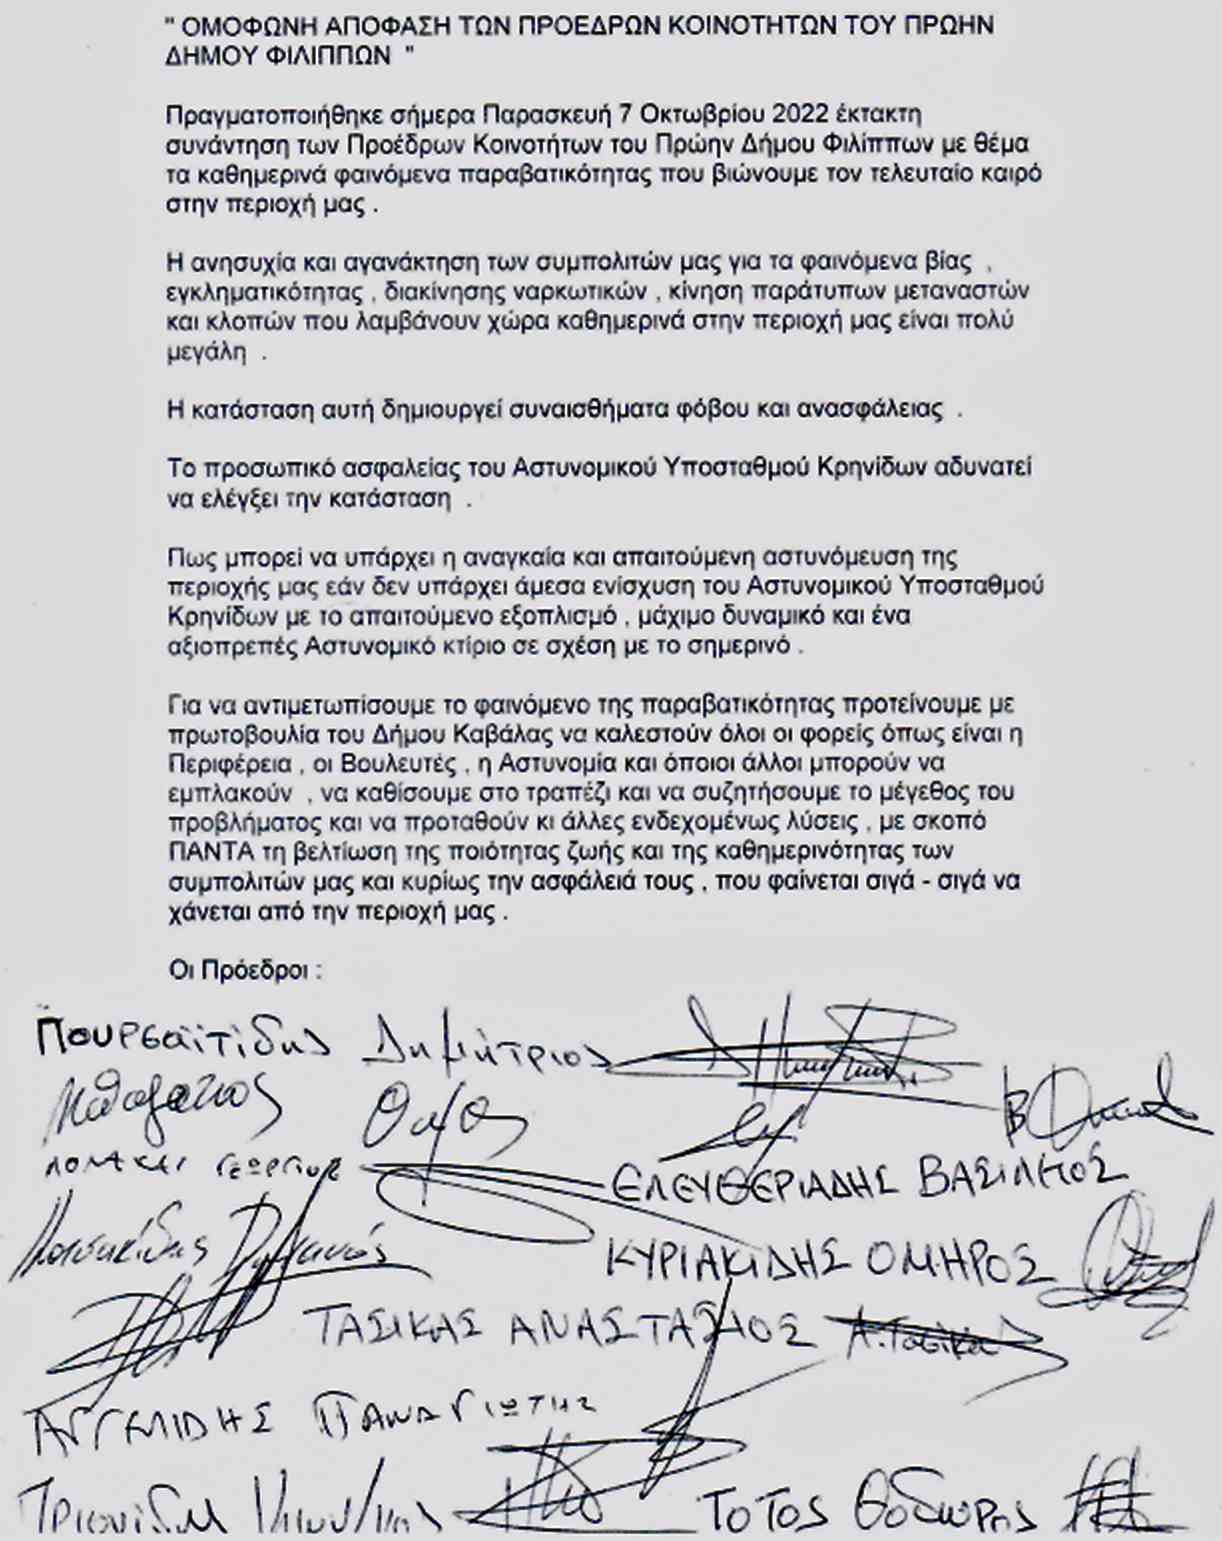 " ΟΜΟΦΩΝΗ ΑΠΟΦΑΣΗ ΤΩΝ ΠΡΟΕΔΡΩΝ ΚΟΙΝΟΤΗΤΩΝ ΤΟΥ ΠΡΩΗΝ
ΔΗΜΟΥ ΦΙΛΙΠΠΩΝ "
Πραγματοποιήθηκε σήμερα Παρασκευή 7 Οκτωβρίου 2022 έκτακτη
συνάντηση των Προέδρων Κοινοτήτων του Πρώην Δήμου Φιλίππων με θέμα
τα καθημερινά φαινόμενα παραβατικότητας που βιώνουμε τον τελευταίο καιρό
στην περιοχή μας .
Η ανησυχία και αγανάκτηση των συμπολιτών μας για τα φαινόμενα βίας ,
εγκληματικότητας , διακίνησης ναρκωτικών , κίνηση παράτυπων μεταναστών
και κλοπών που λαμβάνουν χώρα καθημερινά στην περιοχή μας είναι πολύ
μεγάλη .
Η κατάσταση αυτή δημιουργεί συναισθήματα φόβου και ανασφάλειας .
Το προσωπικό ασφαλείας του Αστυνομικού Υποσταθμού Κρηνίδων αδυνατεί
να ελέγξει την κατάσταση .
Πως μπορεί να υπάρχει η αναγκαία και απαιτούμενη αστυνόμευση της
περιοχής μας εάν δεν υπάρχει άμεσα ενίσχυση του Αστυνομικού Υποσταθμού
Κρηνίδων με το απαιτούμενο εξοπλισμό , μάχιμο δυναμικό και ένα
αξιοπρεπές Αστυνομικό κτίριο σε σχέση με το σημερινό .
Για να αντιμετωπίσουμε το φαινόμενο της παραβατικότητας προτείνουμε με
πρωτοβουλία του Δήμου Καβάλας να καλεστούν όλοι οι φορείς όπως είναι η
Περιφέρεια , οι Βουλευτές , η Αστυνομία και όποιοι άλλοι μπορούν να
εμπλακούν , να καθίσουμε στο τραπέζι και να συζητήσουμε το μέγεθος του
προβλήματος και να προταθούν κι άλλες ενδεχομένως λύσεις , με σκοπό
ΠΑΝΤΑ τη βελτίωση της ποιότητας ζωής και της καθημερινότητας των
συμπολιτών μας και κυρίως την ασφάλειά τους , που φαίνεται σιγά - σιγά να
χάνεται από την περιοχή μας .
Οι Πρόεδροι :
Πουρσαϊτίδης Δημήτριος
ΓΕΩΡΓΙΟΣ ΕΛΕΥΘΕΡΙΑΔΗΣ ΒΑΣΙΛΗΟΣ
ΚΥΡΙΑΚΙΔΗΣ ΟΜΗΡΟΣ
ΤΑΣΙΚΑΣ ΑΝΑΣΤΑΣΙΟΣ Α.Τασίκας
ΑΓΓΕΛΙΔΗΣ ΠΑΝΑΓΙΩΤΗΣ
ΤΟΤΟΣ Θοδωρης